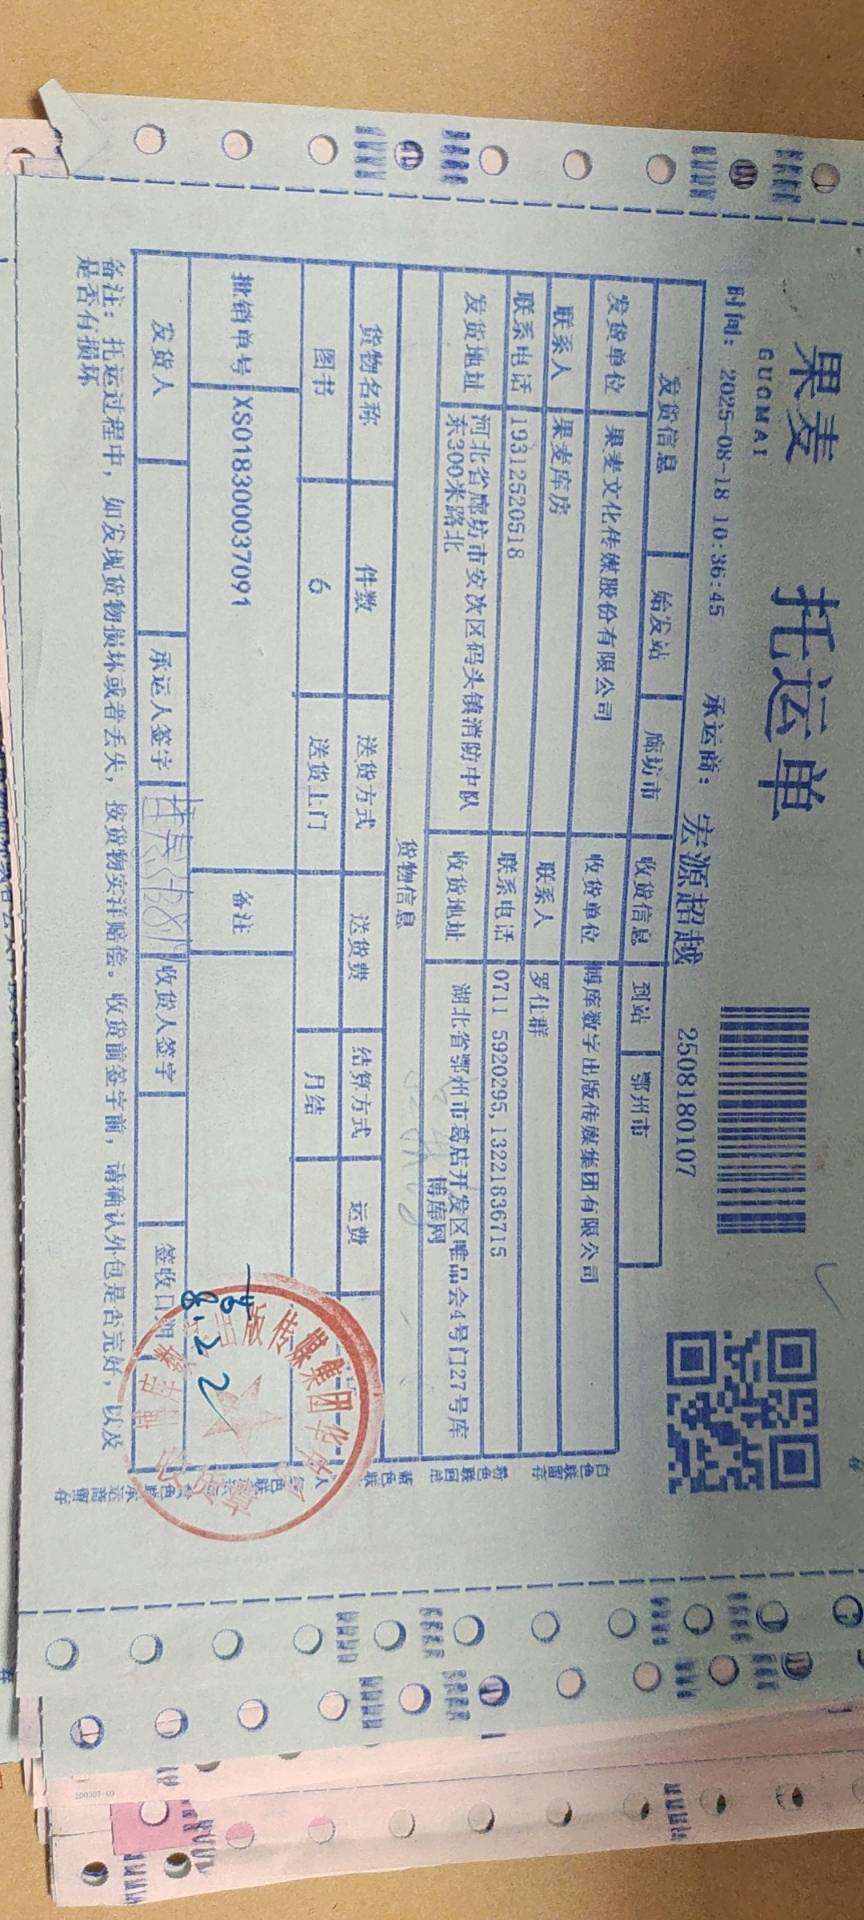 果麦
GUOMAI
托运单
时间: 2025-08-18 10:36:45
承运商: 宏源超越
2508180107
发货信息 始发站 廊坊市 收货信息 到站 鄂州市
发货单位 果麦文化传媒股份有限公司 收货单位 博库数字出版传媒集团有限公司
联系人 果麦库房 联系人 罗仕群
联系电话 19312520518 联系电话 0711 5920295,13221836715
发货地址 河北省廊坊市安次区码头镇消防中队东300米路北 收货地址 湖北省鄂州市葛店开发区唯品会4号门27号库博库网
货物信息
货物名称 件数 送货方式 送货费 结算方式 运费
图书 6 送货上门 月结
批销单号 XS01830037091 备注
发货人 承运人签字 收货人签字 签收日期
8.22
备注: 托运过程中, 如发现货物损坏或者丢失, 按货物实洋赔偿。收货前签字前, 请确认外包是否完好, 以及
是否有损坏